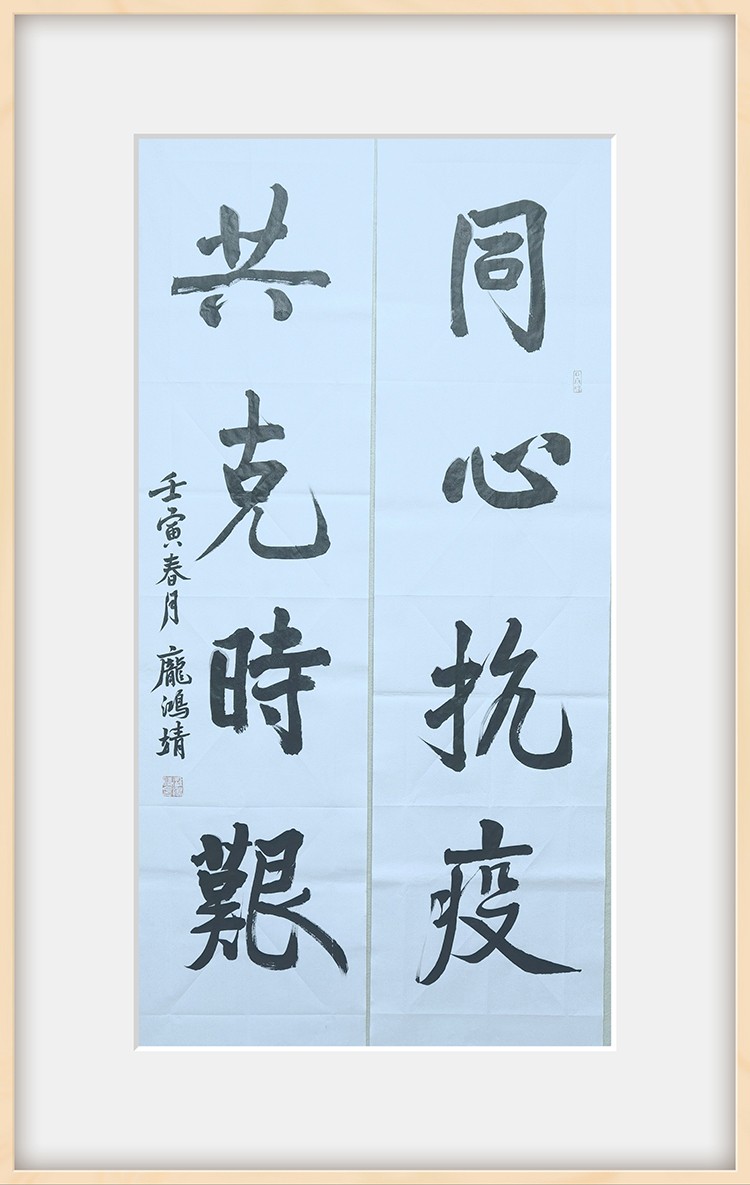 同心抗疫
共克時艱
壬寅春月 龐鴻靖